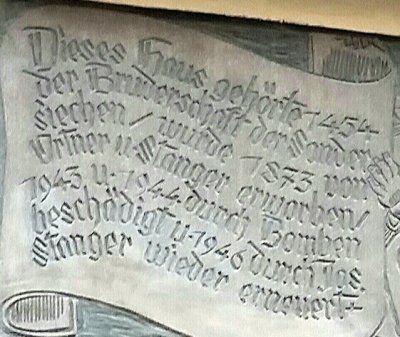 Dieses Haus gehörte 1454
der Bruderschaft der Sonder
siechen / wurde 1873 von
Ortner u. Stanger erworben /
1943 u. 1944 durch Bomben
beschädigt u. 1946 durch Jgs.
Stanger wieder erneuert